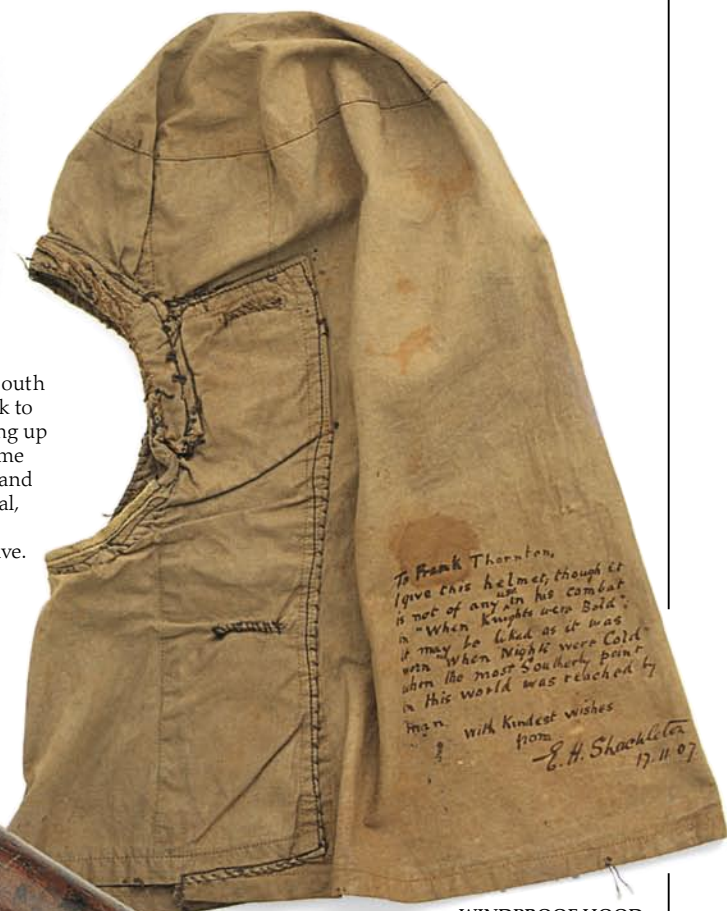 outh
k to
ng up
me
and
al,
ve.
To Frank Thornton,
I give this helmet, though it
is not of any use in his combat
in "When Knights were Bold";
it may be liked as it was
worn "When Nights were Cold"
when the most Southerly point
in this world was reached by
man.
with Kindest wishes
from
E. H. Shackleton
17.11.07
WINDPROOF HOOD